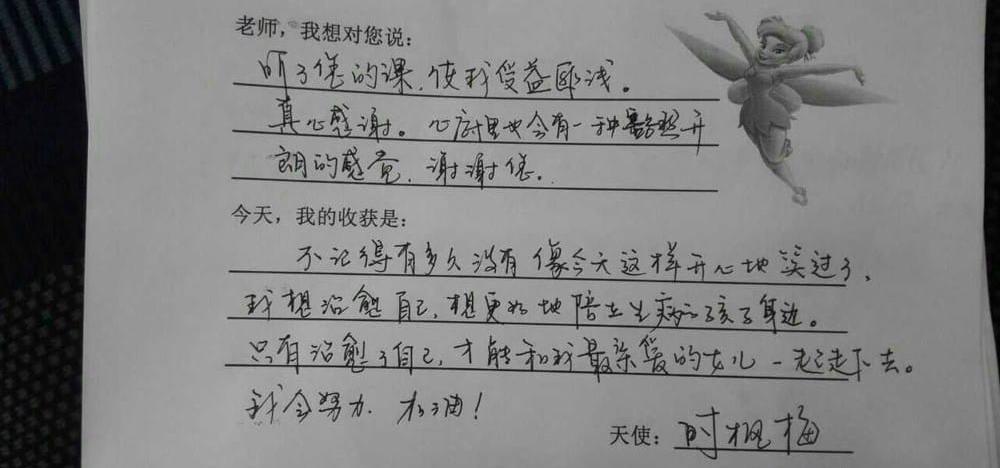 老师，我想对您说：
听了您的课，使我受益匪浅。
真心感谢。心里也会有一种豁然开
朗的感觉，谢谢您。
今天，我的收获是：
不记得有多久没有像今天这样开心地笑过了，
我想治愈自己，想更好地陪在生病的孩子身边。
只有治愈了自己，才能和我最亲爱的女儿一起走下去。
我会努力，加油！
天使：时枫梅